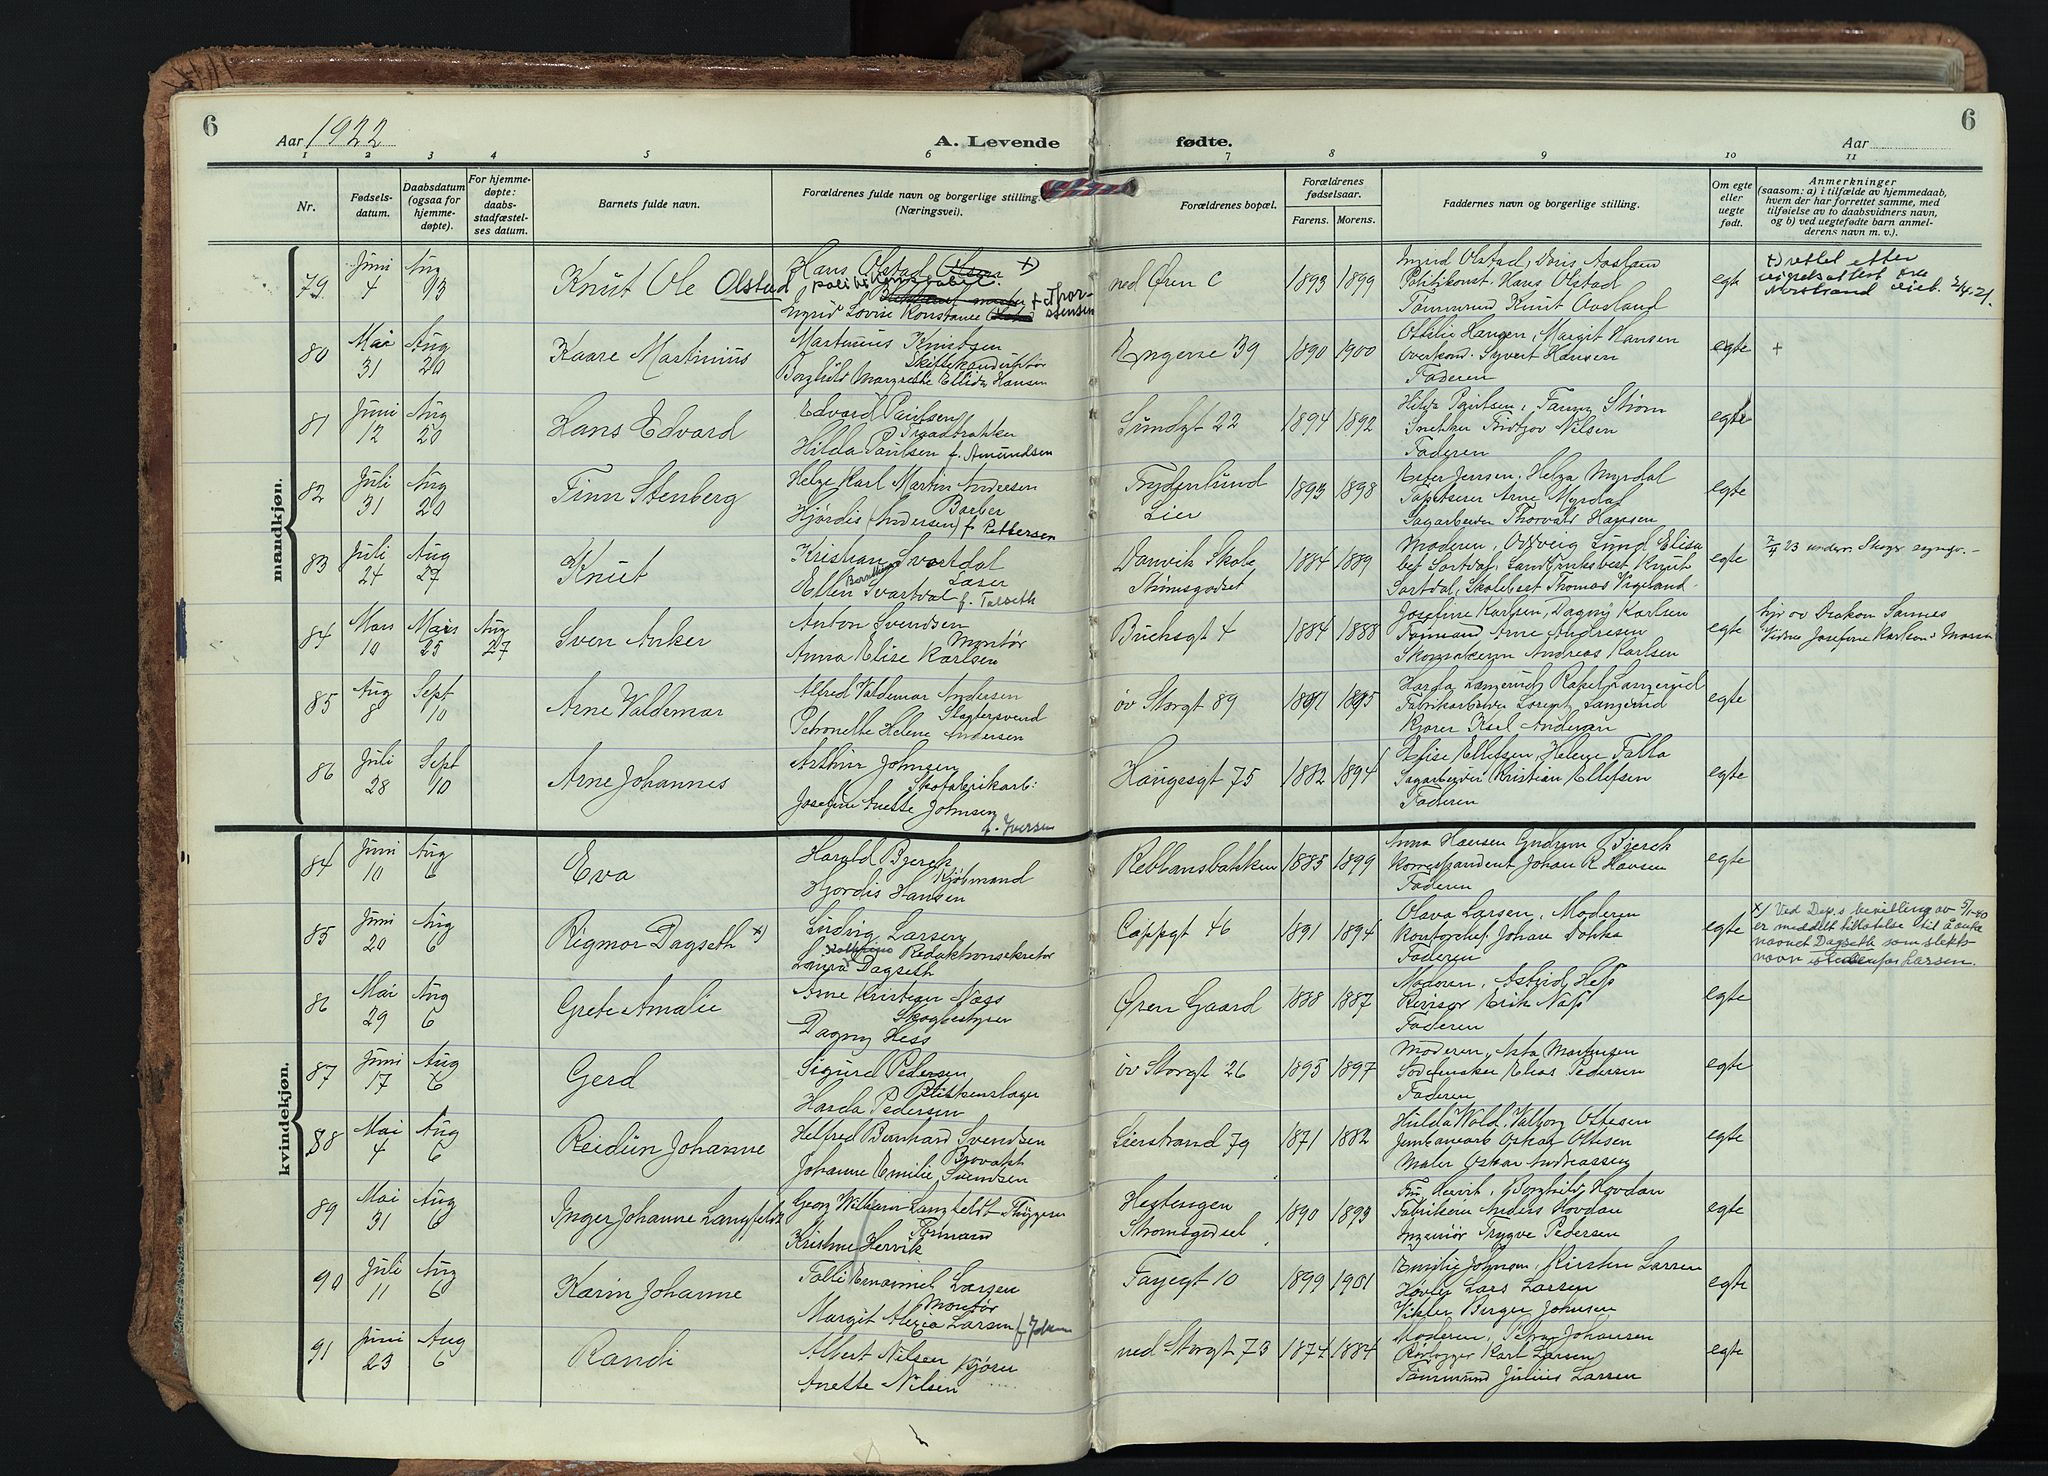 6
Aar 1922
A. Levende
fødte.
Aar
6
1 2 3 4 5 6 7 8 9 10 11
Nr.
Fødsels-
datum.
Daabsdatum
(ogsaa for
hjemme-
døpte).
For hjemme-
døpte:
daabs-
stadfæstel-
ses datum.
Barnets fulde navn.
Forældrenes fulde navn og borgerlige stilling.
(Næringsvei).
Forældrenes bopæl.
Forældrenes
fødselsaar.
Farens. Morens.
Faddernes navn og borgerlige stilling.
Om egte
eller
uegte
født.
Anmerkninger
(saasom: a) i tilfælde av hjemmedaab,
hvem der har forrettet samme, med
tilføielse av to daabsvidners navn,
og b) ved uegtefødte barn anmel-
derens navn m. v.).
mandkjøn.
79
Juni
4
Aug
Knut Ole Olstad
Hans Olstad Olsen +)
politikonstabel.
Ingrid Lovise Konstance f. Thor-
stensen
ned Øren C
1893 1899
Ingrid Olstad, Doris Aasland
Politikonst. Hans Olstad
Tømmermand Knut Aasland
egte
+) rettet efter
80
Mai
31
Aug
20
Kaare Martinius
Martinius Knutsen
Skiftekonduktør
Borghild Margrethe Ellida Hansen
Engene 39
1890 1900
Ottilie Hansen, Margit Hansen
Overkond. Syvert Hansen
Faderen
egte
+
81
Juni
12
Aug
20
Hans Edvard
Edvard Paulsen
Traadtrækker
Hilda Paulsen f. Amundsen
Sundgt 22
1894 1892
Hilda Paulsen, Fanny Strøm
Snekker Fridtjov Nilsen
Faderen
egte
82
Juli
31
Aug
20
Finn Stenberg
Helge Karl Martin Andersen
Barber
Hjørdis (Andersen) f. Pettersen
Frydenlund
Lier
1893 1898
Ester Jensen, Helga Myrdal
Tapetserer Arne Myrdal
Sagarbeider Thorvald Hansen
egte
83
Juli
24
Aug
27
Knut
Kristian Svartdal
Læser
Ellen Svartdal f. Talseth
Danvik Skole
Strømsgodset
1884 1889
Moderen, Oddveig Lund, Elisa
bet Sortdal, Landbruksbest Knut
Sortdal, Skolebest Thomas Vigeland
egte
84
Mars
10
Mars
25
Aug
27
Sven Anker
Anton Svendsen
Montør
Anna Elise Karlsen
Buchsgt 4
1884 1888
Josefine Karlsen, Dagny Karlsen
Formand Arne Andresen
Skomakerm Andreas Karlsen
egte
hj. av Diakon Sannes
Vidne Josefine Karlsen, Moren
85
Aug
8
Sept
10
Arne Valdemar
Alfred Valdemar Andersen
Slagtersvend
Petronelle Helene Andersen
øv Storgt 89
1891 1895
Harda Langerud, Rakel Langerud
Fabrikarbeider Lorentz Langerud
Kjører Karl Andersen
egte
86
Juli
28
Sept
10
Arne Johannes
Arthur Johnsen
Skofabrikarb:
Josefine Anette Johnsen
f. Iversen
Haugesgt 75
1882 1894
Helise Ellefsen, Helene Falla
Sagarbeider Kristian Ellefsen
Faderen
egte
kvindekjøn.
84
Juni
10
Aug
6
Eva
Harald Bjerck
Kjøbmand
Hjordis Hansen
Rebbansbakken
1885 1899
Anna Hansen, Gudrun Bjerck
Korrespondent Johan R Hansen
Faderen
egte
85
Juni
20
Aug
6
Rigmor Dagseth x)
Ludvig Larsen
Redaktionsekretær
Lovisa Dagseth
Cappgt 46
1891 1894
Olava Larsen, Moderen
Kontorchef Johan Dokka
Faderen
egte
x) Ved Dep.s bevilling av 5/1-40
er meddelt tillatelse til å anta
navnet Dagseth som slekts-
navn istedenfor Larsen.
86
Mai
29
Aug
6
Grete Amalie
Arne Kristian Næss
Skogbestyrer
Dagny Hess
Øren Gaard
1888 1887
Moderen, Astrid Hess
Revisor Erik Næss
Faderen
egte
87
Juni
17
Aug
6
Gerd
Sigurd Pedersen
Blikkenslager
Harda Pedersen
øv Storgt 26
1895 1897
Moderen, Asta Martinsen
Sodemaker Elias Pedersen
Faderen
egte
88
Mai
4
Aug
6
Reidun Johanne
Helfred Bernhard Svendsen
Brovakt
Johanne Emilie Svendsen
Lierstrand 79
1871 1882
Hulda Wold, Valborg Ottesen
Jernbanearb Oskar Ottesen
Maler Oskar Andreassen
egte
89
Mai
31
Aug
6
Inger Johanne Langfeldt
Georg William Langfeldt
Formand
Kristine Hervik
Hestengen
Strømsgodset
1890 1893
Fru Hervik, Borghild Hovdan
Fabrikeier Anders Hovdan
Ingeniør Trygve Pedersen
egte
90
Juli
11
Aug
6
Karin Johanne
Tolle Emanuel Larsen
Montør
Margit Alexia Larsen
Fayegt 10
1899 1901
Emilie Johnsen, Kirsten Larsen
Høvler Lars Larsen
Vikler Birger Johnsen
egte
91
Juni
23
Aug
6
Randi
Albert Nilsen
Kjører
Anette Nilsen
ned Storgt 73
1874 1884
Moderen, Petra Johansen
Rørlægger Karl Larsen
Tømmermand Julius Larsen
egte